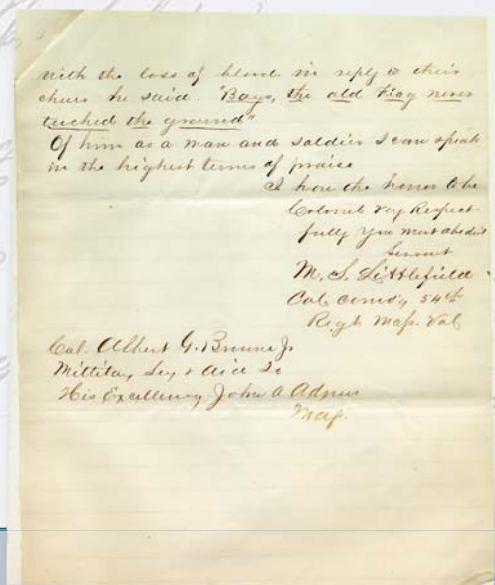 with the loss of blood in reply to their
cheers he said. "Boys, the old Flag never
touched the ground"
Of him as a man and soldier I can speak
in the highest terms of praise
I have the honor to be
Colonel Very Respect
fully Your most obedient
Servant
M. S. Littlefield
Col comd'g 54th
Regt Mass. Vol
Col. Albert G. Browne Jr
Military Sec & Aid to
His Excellency John A
Mass.